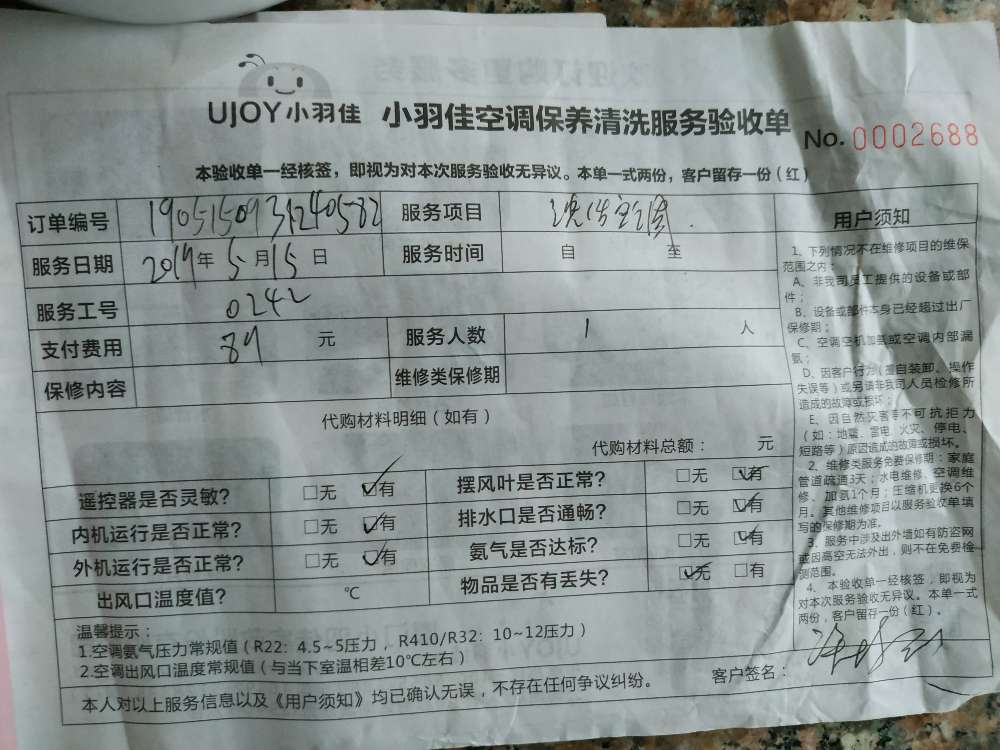 UJOY小羽佳 小羽佳空调保养清洗服务验收单
No. 0002688
本验收单一经核签，即视为对本次服务验收无异议。本单一式两份，客户留存一份（红）
订单编号 1905150931240582 服务项目
服务日期 2019年5月15日 服务时间 自 至
服务工号 0242
支付费用 89 元 服务人数 1 人
保修内容 维修类保修期
代购材料明细（如有）
代购材料总额： 元
遥控器是否灵敏? □无 ☑有 摆风叶是否正常? □无 ☑有
内机运行是否正常? □无 ☑有 排水口是否通畅? □无 ☑有
外机运行是否正常? □无 ☑有 氨气是否达标? □无 ☑有
出风口温度值? ℃ 物品是否有丢失? ☑无 □有
温馨提示：
1.空调氨气压力常规值（R22：4.5~5压力，R410/R32：10~12压力）
2.空调出风口温度常规值（与当下室温相差10℃左右）
客户签名：
本人对以上服务信息以及《用户须知》均已确认无误，不存在任何争议纠纷。
用户须知
1、下列情况不在维修项目的维保
范围之内：
A、非我司员工提供的设备或部
件；
B、设备或部件本身已经超过出厂
保修期；
C、空调空机加氨或空调内部漏
氨；
D、因客户行为（擅自装卸、操作
失误等）或另请非我司人员检修所
造成的故障或损坏；
E、因自然灾害等不可抗拒力
（如：地震、雷电、火灾、停电、
短路等）原因造成的故障或损坏。
2、维修类服务免费保修期：家庭
管道疏通3天；水电维修、空调维
修、加氨1个月；压缩机更换6个
月。其他维修项目以服务验收单填
写的保修期为准。
3、服务中涉及出外墙如有防盗网
或因高空无法外出，则不在免费检
测范围。
4、本验收单一经核签，即视为
对本次服务验收无异议。本单一式
两份，客户留存一份（红）。